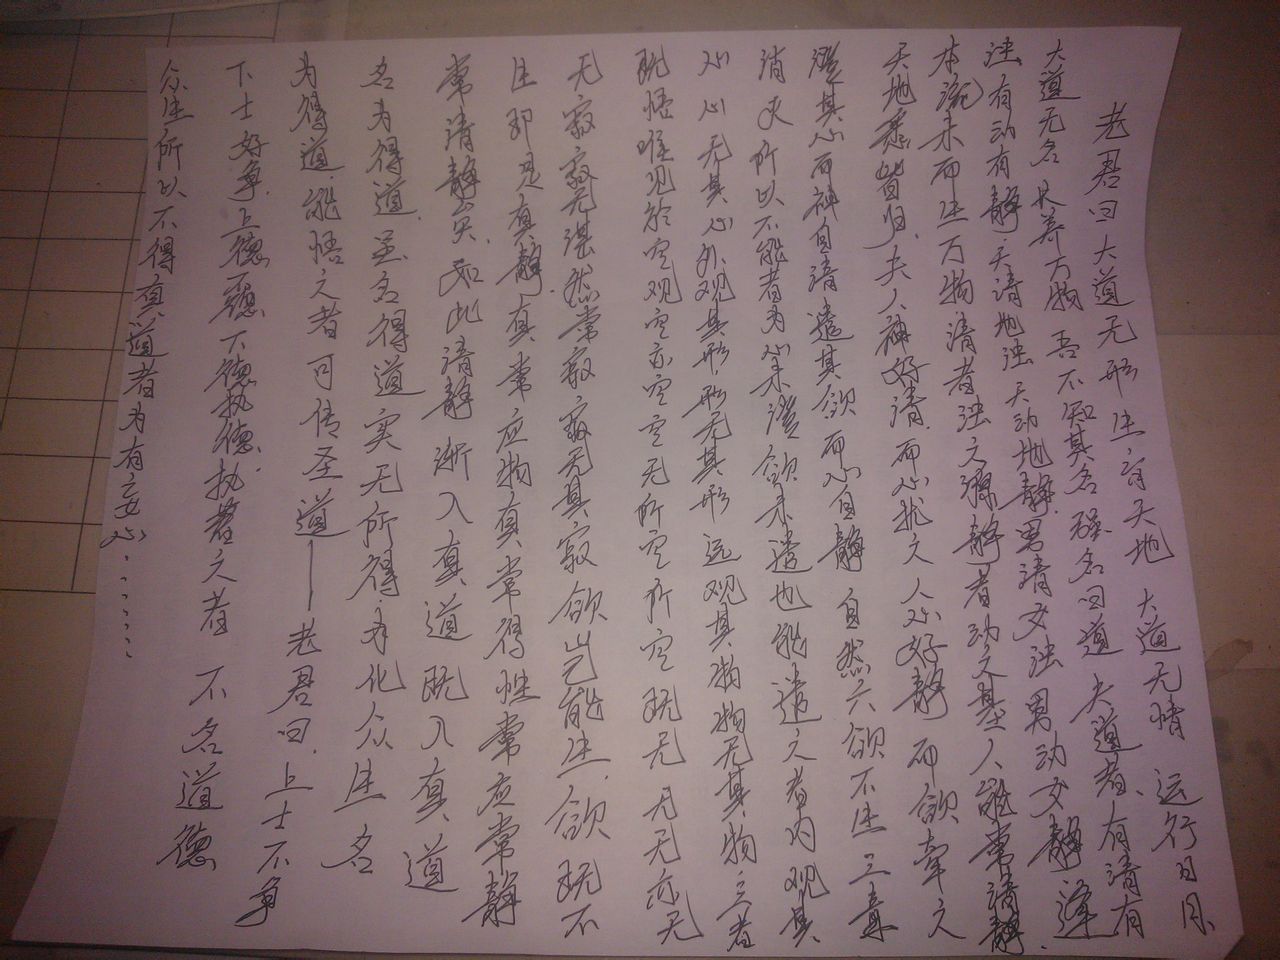 老君曰大道无形生育天地 大道无情 远行日月
大道无名 长养万物 吾不知其名强名曰道 夫道者、有清有
浊有动有静 天清地浊 天动地静.男清女浊 男动女静 降
本流末而生万物清者浊之源静者动之基人能常清静.
天地悉皆归.夫人神好清.而心扰之 人心好静 而欲牵之
澄其心而神自清遣其欲 而心自静 自然六欲不生三毒
消灭 所以不能者为心未澄欲未遣也能遣之者内观其
心心无其心外观其形形无其形 远观其物物无其物 三者
既悟唯见於空观空亦空空无所空所空既无 无无亦无
无寂寂无湛然常寂 寂无其寂 欲岂能生.欲既不
生即是真静.真常应物真常得性常应常静
常清静矣.如此清静渐入真道 既入真道
名为得道.虽名得道实无所得.为化众生名
为得道.能悟之者可传圣道——老君曰.上士不争
下士好争.上德不德.下德执德.执著之者 不名道德
众生所以不得真道者为有妄心.........